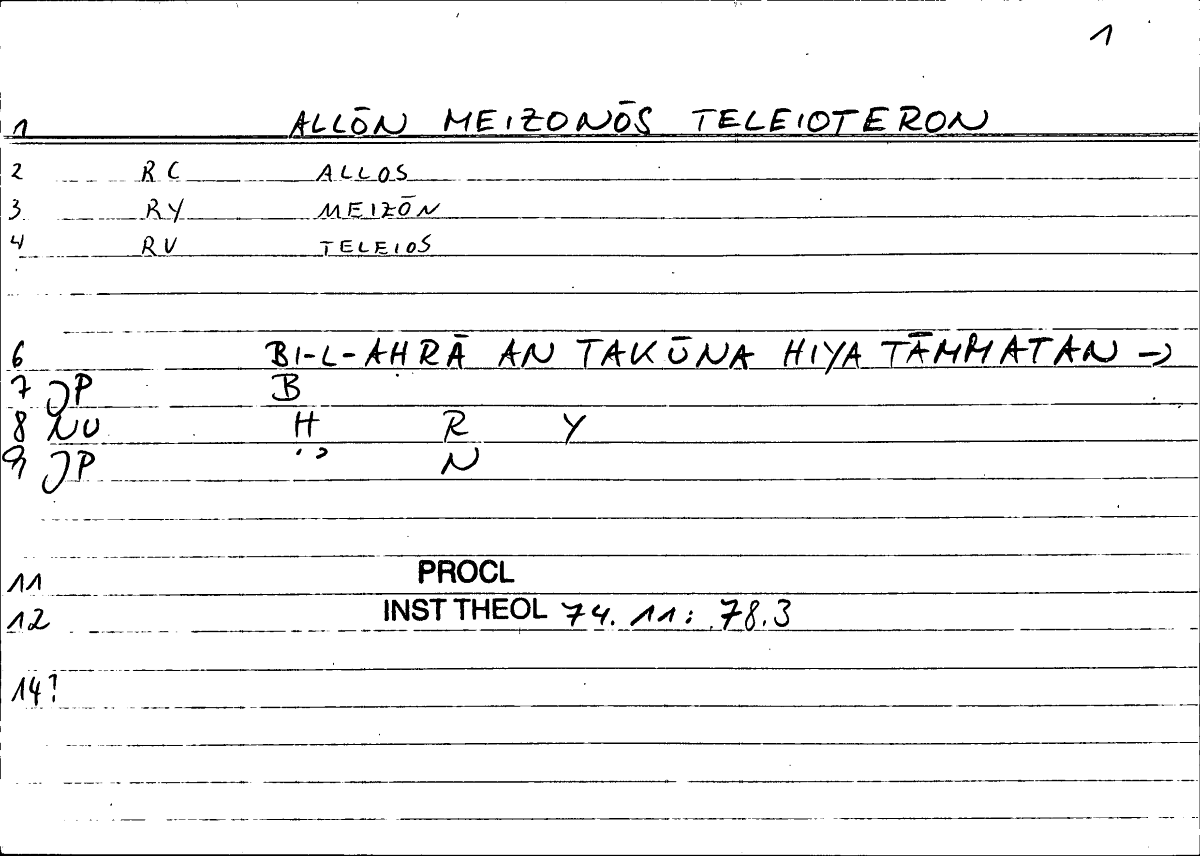 1
1 ALLŌN MEIZONŌS TELEIOTERON
2 RC ALLOS
3 RY MEIZŌN
4 RU TELEIOS
6 BI-L-AHRĀ AN TAKŪNA HIYA TĀMMATAN →
7 JP B
8 NU H R Y
9 JP ' ' N
11 PROCL
12 INST THEOL 74. 11: 78.3
14?